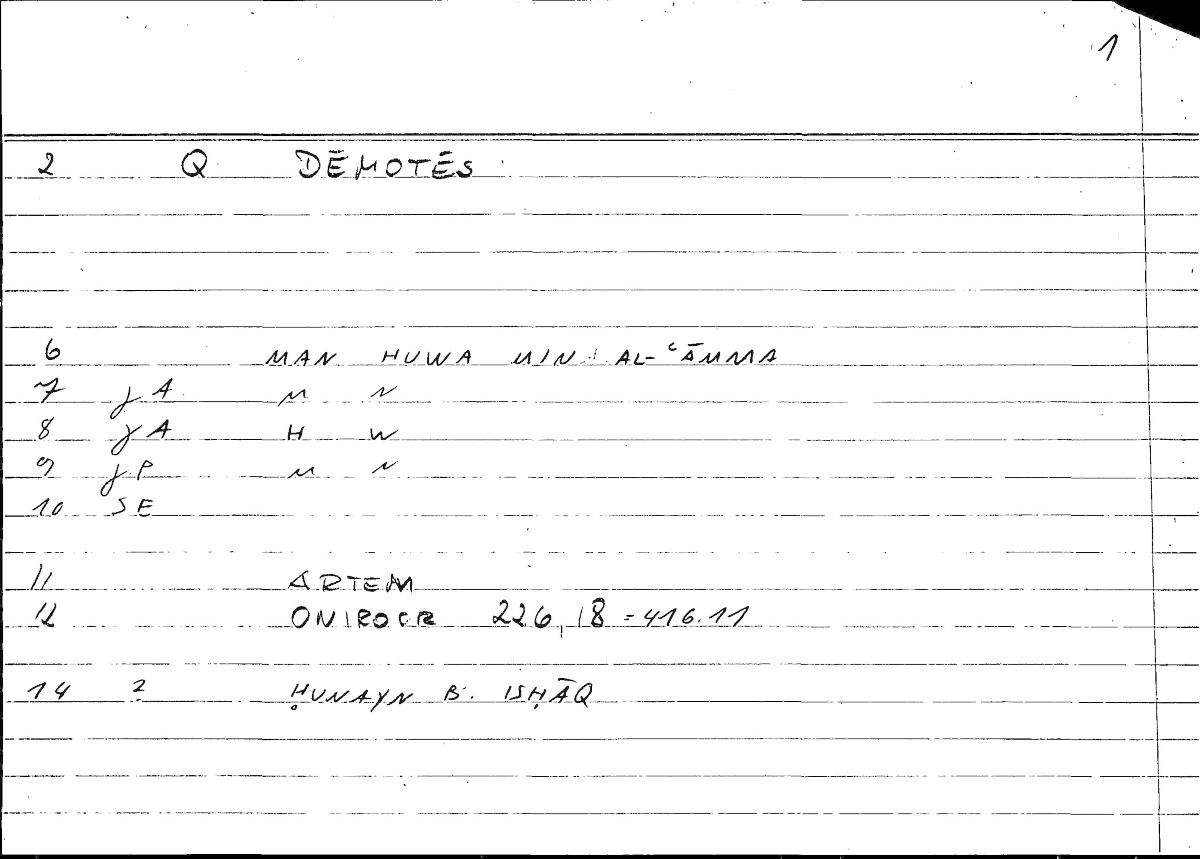 1
2 Q DĒMOTĒS
6 MAN HUWA MIN AL-ʿĀMMA
7 jA M N
8 jA H W
9 jP M N
10 SE
11 ARTEM
12 ONIROCR 226,18 = 416.11
14 2 ḤUNAYN B. ISḤĀQ